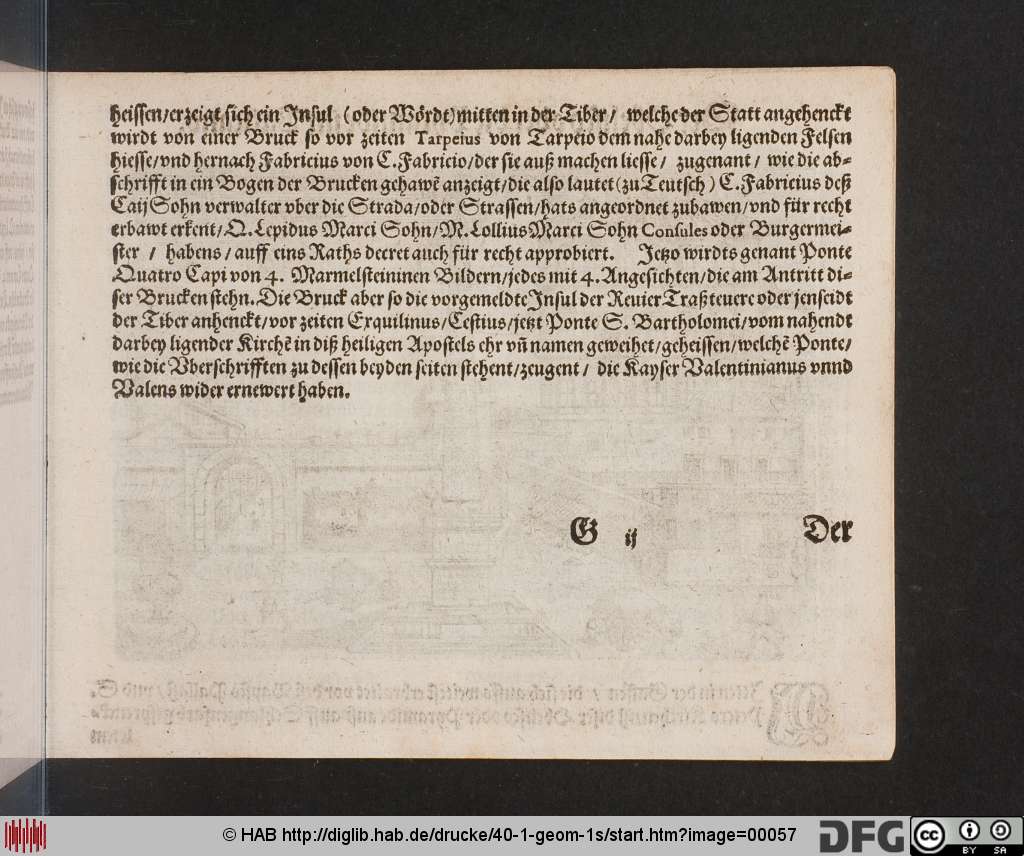 heissen/erzeigt sich ein Insul (oder Wördt) mitten in der Tiber/ welche der Statt angehenckt
wirdt von einer Bruck so vor zeiten Tarpeius von Tarpeio dem nahe darbey ligenden Felsen
hiesse/vnd hernach Fabricius von C. Fabricio/der sie auß machen liesse/ zugenant/ wie die ab-
schrifft in ein Bogen der Brucken gehawẽ anzeigt/die also lautet (zu Teutsch) C. Fabricius deß
Caij Sohn verwalter vber die Strada/oder Strassen/hats angeordnet zubawen/vnd für recht
erbawt erkent/Q. Lepidus Marci Sohn/M. Lollius Marci Sohn Consules oder Burgermei-
ster / habens/ auff eins Raths decret auch für recht approbiert. Jetzo wirdts genant Ponte
Quatro Capi von 4. Marmelsteininen Bildern/jedes mit 4. Angesichten/die am Antritt di-
ser Brucken stehn. Die Bruck aber so die vorgemeldte Insul der Reuier Traßteuere oder jenseidt
der Tiber anhenckt/vor zeiten Exquilinus/Cestius/jetzt Ponte S. Bartholomei/vom nahendt
darbey ligender Kirchẽ in diß heiligen Apostels ehr vñ namen geweihet/geheissen/welchẽ Ponte/
wie die Vberschrifften zu dessen beyden seiten stehent/zeugent/ die Kayser Valentinianus vnnd
Valens wider ernewert haben.
G ij Der
© HAB http://diglib.hab.de/drucke/40-1-geom-1s/start.htm?image=00057 DFG cc BY SA